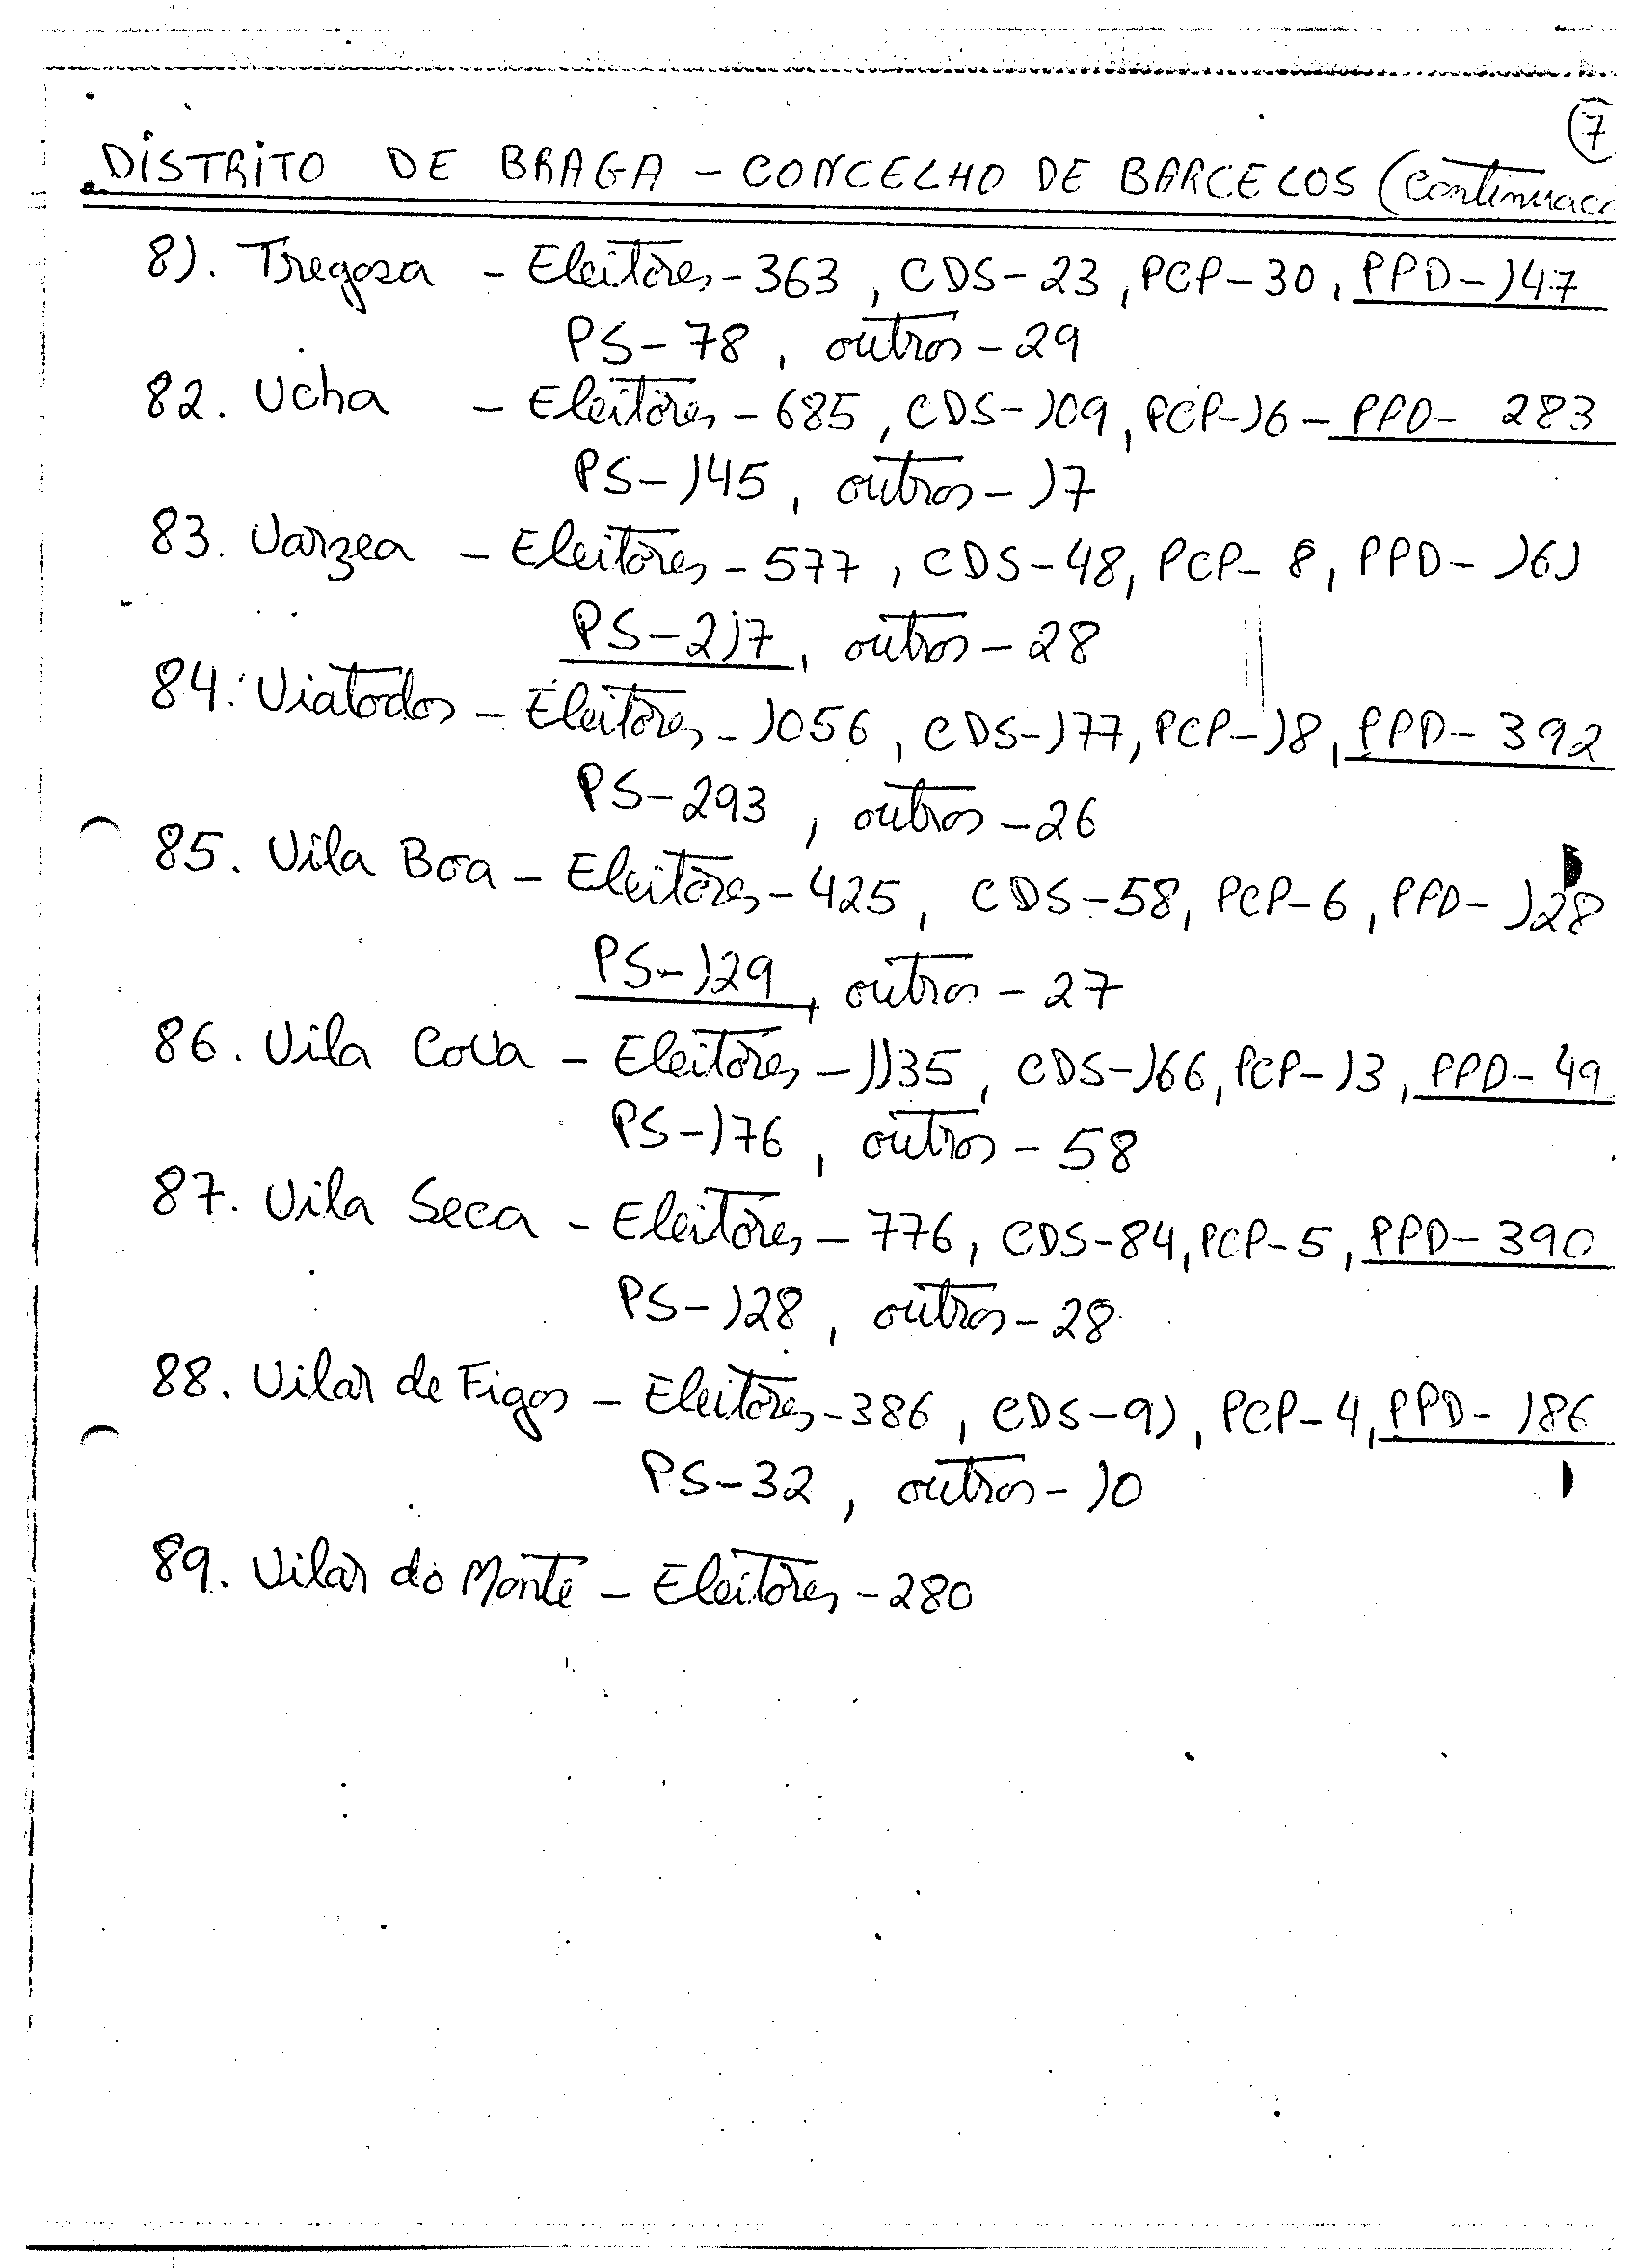 7
DISTRITO DE BRAGA - CONCELHO DE BARCELOS (Continuaç
81. Tregosa - Eleitores - 363, CDS - 23, PCP - 30, PPD - 147
PS - 78, outros - 29
82. Ucha - Eleitores - 685, CDS - 109, PCP - 16 - PPD - 283
PS - 145, outros - 17
83. Varzea - Eleitores - 577, CDS - 48, PCP - 8, PPD - 161
PS - 217, outros - 28
84. Viatodos - Eleitores - 1056, CDS - 177, PCP - 18, PPD - 392
PS - 293, outros - 26
85. Vila Boa - Eleitores - 425, CDS - 58, PCP - 6, PPD - 128
PS - 129, outros - 27
86. Vila Cova - Eleitores - 1135, CDS - 166, PCP - 13, PPD - 49
PS - 176, outros - 58
87. Vila Seca - Eleitores - 776, CDS - 84, PCP - 5, PPD - 390
PS - 128, outros - 28
88. Vilar de Figos - Eleitores - 386, CDS - 91, PCP - 4, PPD - 186
PS - 32, outros - 10
89. Vilar do Monte - Eleitores - 280